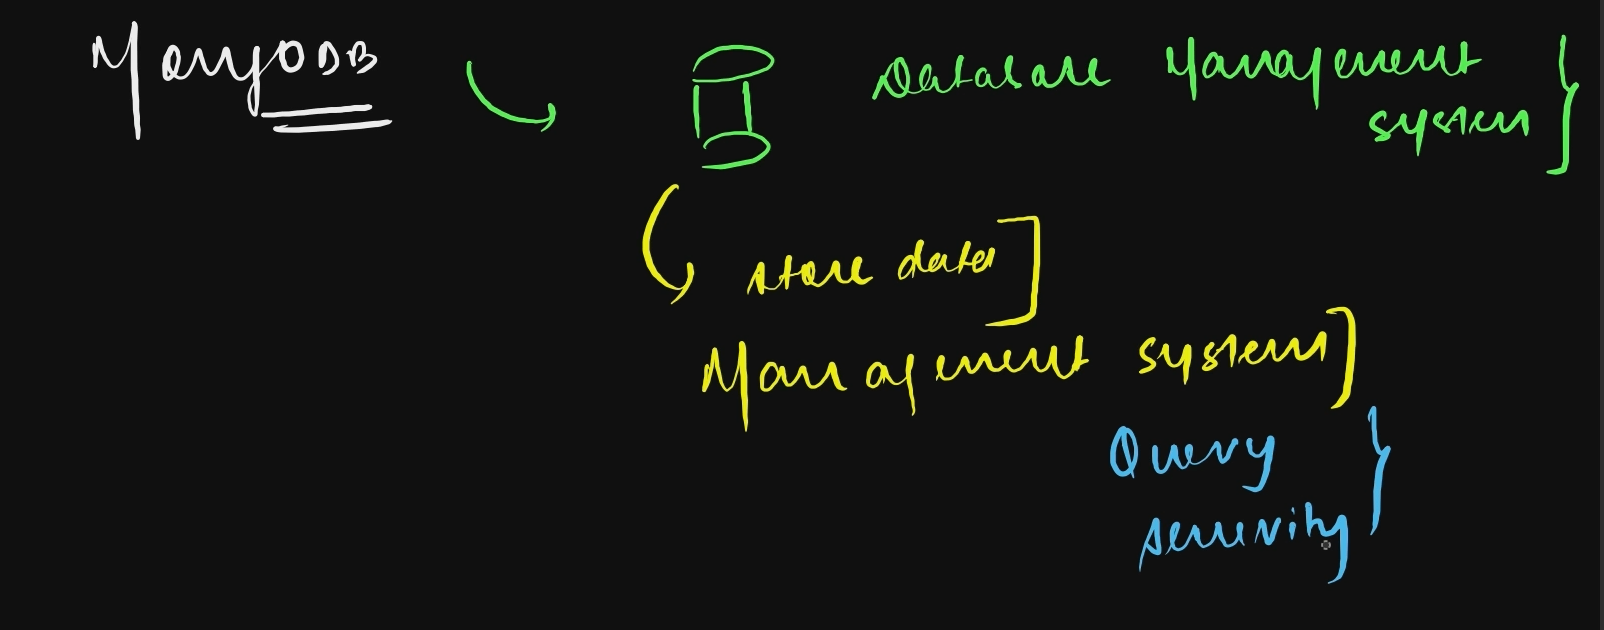 MongoDB
Database Management
system
store data
Management system
Query
security